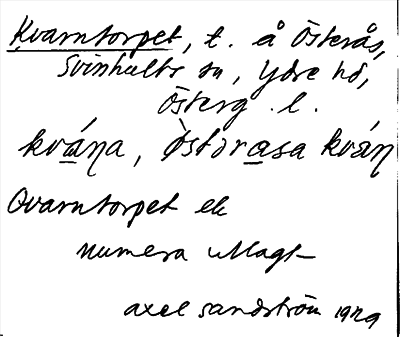 Kvarntorpet, t. å Österås,
Svinhults sn, Ydre hd,
Österg. l.
kvána, Östərasa kván
Qvarntorpet ek
numera utlagt
Axel Sandström 1929